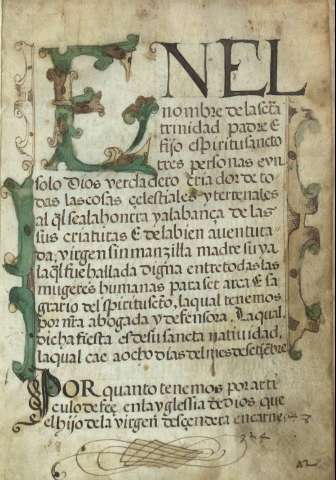 EN EL
nombre de la scta
trinidad padre E
fijo espiritu sancto
tres personas E un
solo Dios verdadero criador de to
das las cosas çelestiales y terrenales
al ql sea la honrra y alabança de las
sus criaturas E de la bien aventura
da, virgen sin manzilla madre suya
la ql fue hallada digna entre todas las
mugeres humanas para ser arca E sa
grario del spiritu scto, la qual tenemos
por nra abogada y defensora. La qual
dicha fiesta es de su sancta natividad,
la qual cae a ocho dias del mes de setiẽbre
POR quanto tenemos por arti
culo de fee en la yglessia de dios que
el hijo de la virgen desçendera encarne